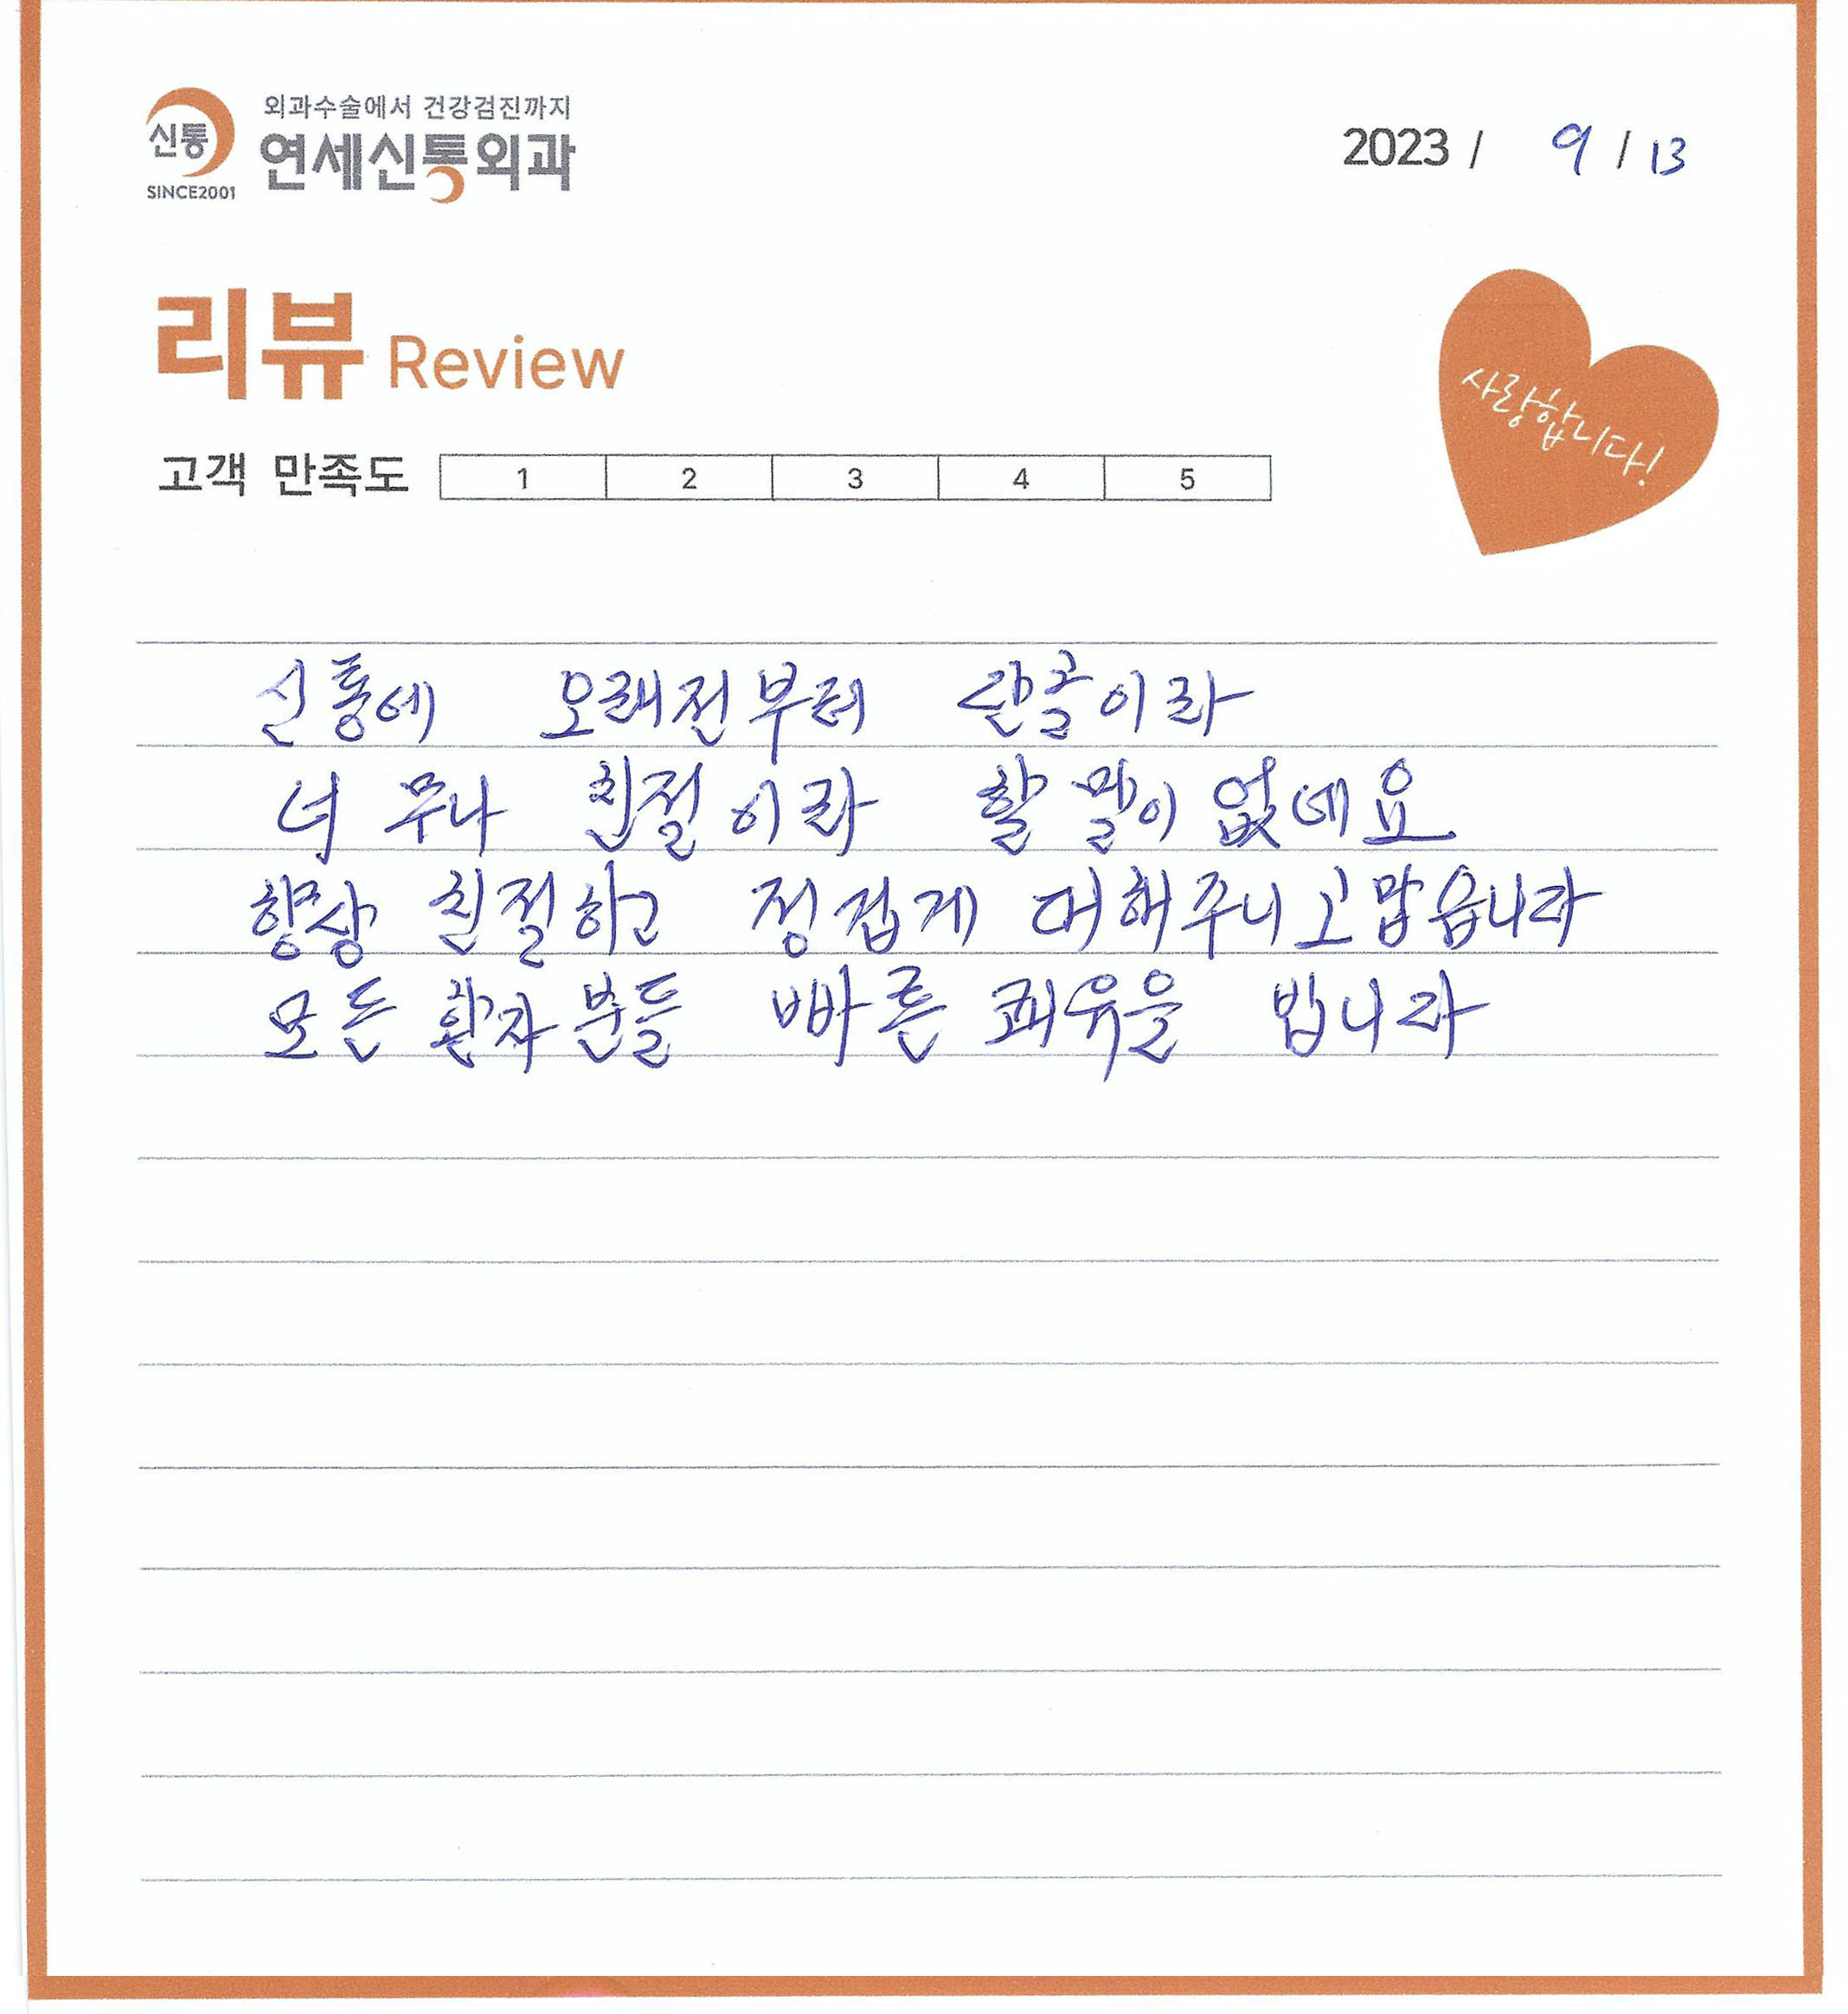 신통
SINCE2001
외과수술에서 건강검진까지
연세신통외과
2023 / 9 / 13
리뷰 Review
사랑합니다!
고객 만족도 1 2 3 4 5
신통에 오래전부터 단골이라
너무나 친절이라 할 말이 없네요
항상 친절하고 정겹게 대해주니 고맙습니다
모든 환자분들 빠른 쾌유을 빕니다